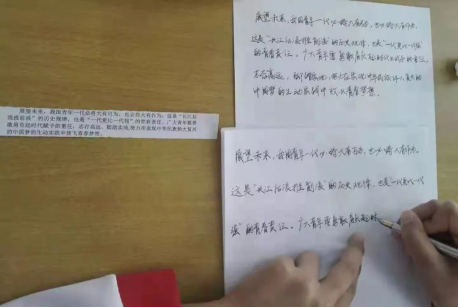 展望未来，我国青年一代必将大有可为，也必将大有作为。这是“长江后
浪推前浪”的历史规律，也是“一代更比一代强”的青春责任。广大青年要
勇敢肩负起时代赋予的重任，志存高远，脚踏实地，努力在实现中华民族伟大复兴
的中国梦的生动实践中放飞青春梦想。
展望未来，我国青年一代必将大有可为，也必将大有作为。
这是“长江后浪推前浪”的历史规律，也是“一代更比一代强”
的青春责任。广大青年要勇敢肩负起时代赋予的重任，
志存高远，脚踏实地，努力在实现中华民族伟大复兴的
中国梦的生动实践中放飞青春梦想。
展望未来，我国青年一代必将大有可为，也必将大有作为。
这是“长江后浪推前浪”的历史规律，也是“一代更比一代
强”的青春责任。广大青年要勇敢肩负起时